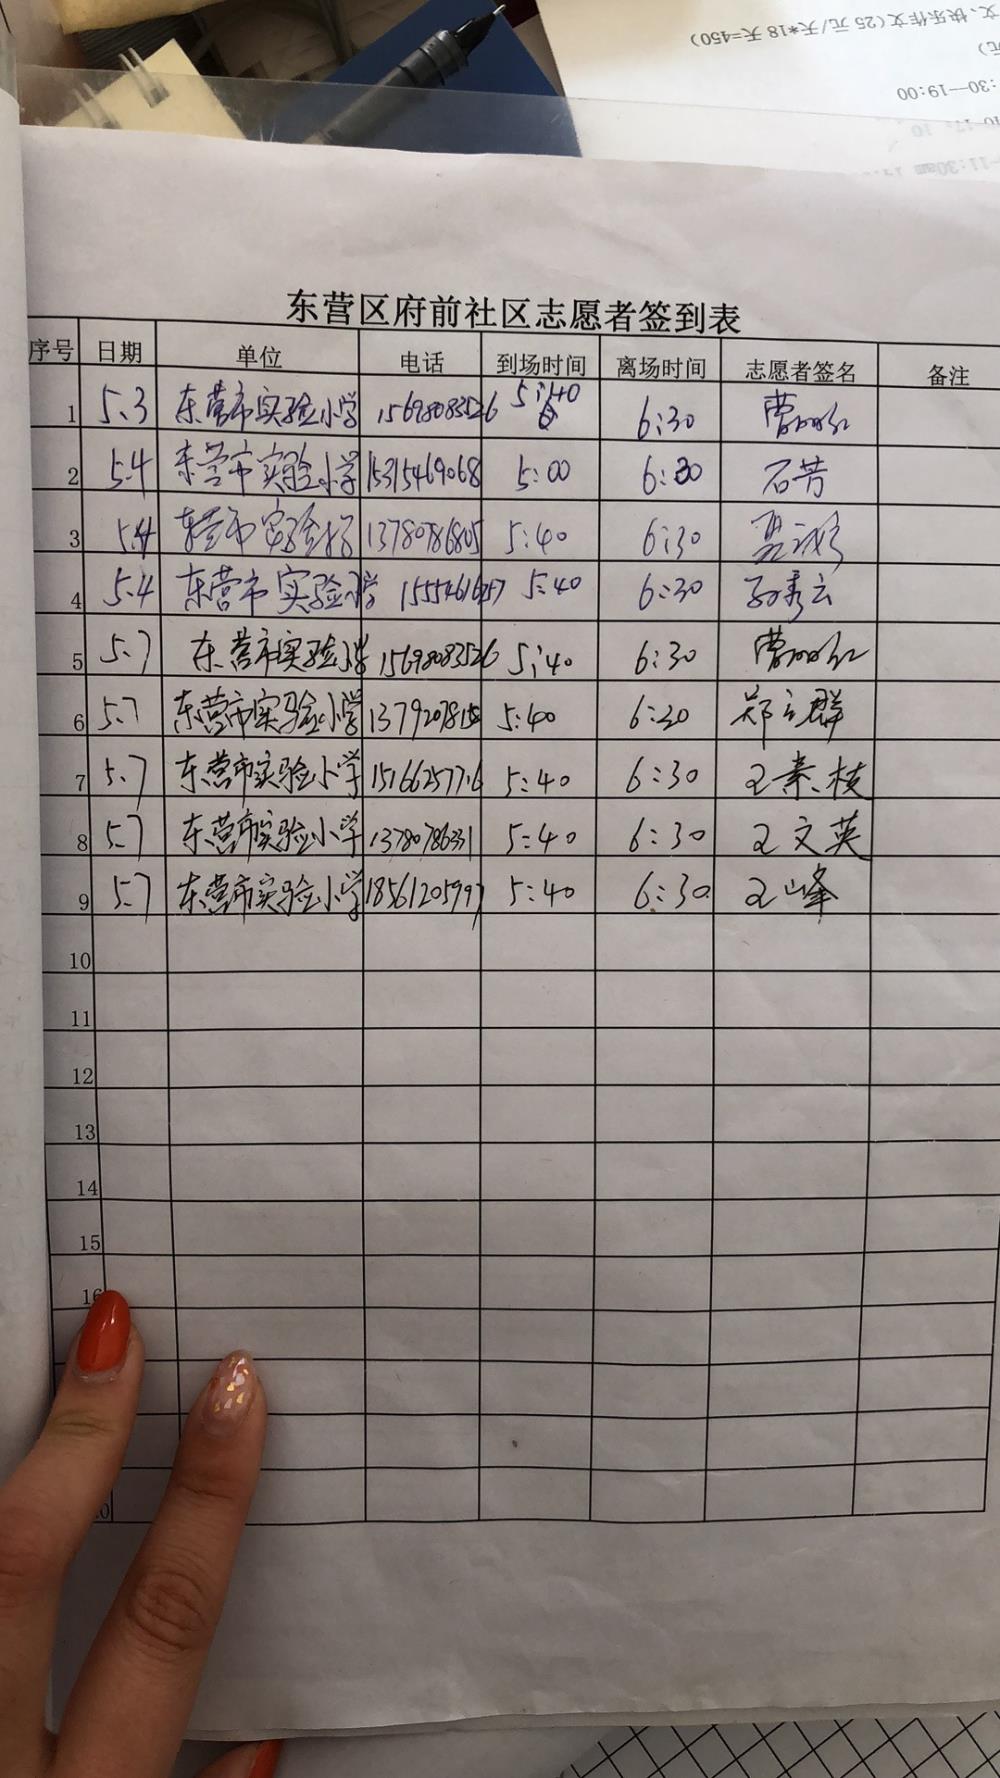 文、快乐作文(25元/天*18天=450)
:30—19:00
东营区府前社区志愿者签到表
序号 日期 单位 电话 到场时间 离场时间 志愿者签名 备注
1 5.3 东营市实验小学 15698083526 5:40 6:30
2 5.4 东营市实验小学 15315469068 5:00 6:30 石芳
3 5.4 东营市实验小学 13780786805 5:40 6:30
4 5.4 东营市实验小学 5:40 6:30 孙秀云
5 5.7 东营市实验小学 15698083526 5:40 6:30
6 5.7 东营市实验小学 5:40 6:30 郑立群
7 5.7 东营市实验小学 5:40 6:30 王素枝
8 5.7 东营市实验小学 13780786331 5:40 6:30 王文英
9 5.7 东营市实验小学 18561205997 5:40 6:30 王峰
10
11
12
13
14
15
16